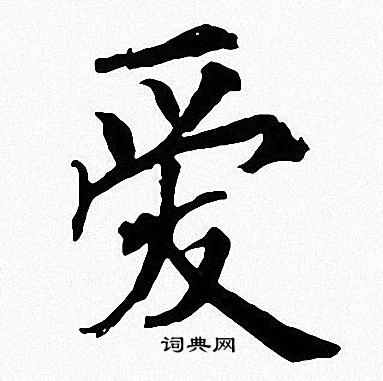 爱
词典网